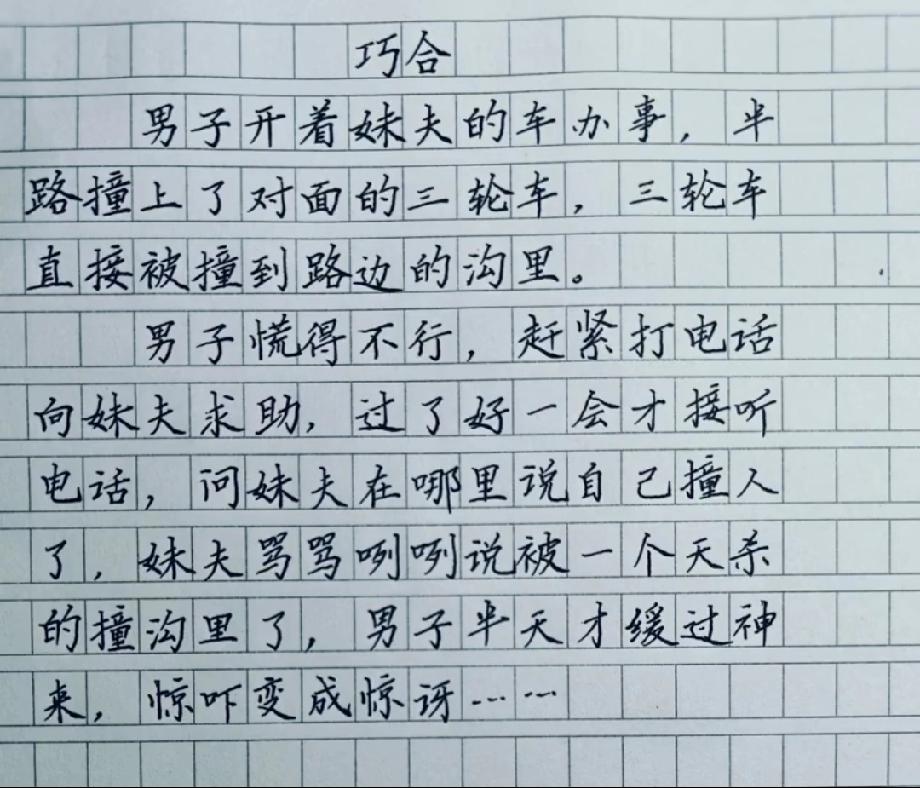 巧合
男子开着妹夫的车办事，半
路撞上了对面的三轮车，三轮车
直接被撞到路边的沟里。
男子慌得不行，赶紧打电话
向妹夫求助，过了好一会才接听
电话，问妹夫在哪里说自己撞人
了，妹夫骂骂咧咧说被一个天杀
的撞沟里了，男子半天才缓过神
来，惊吓变成惊讶……